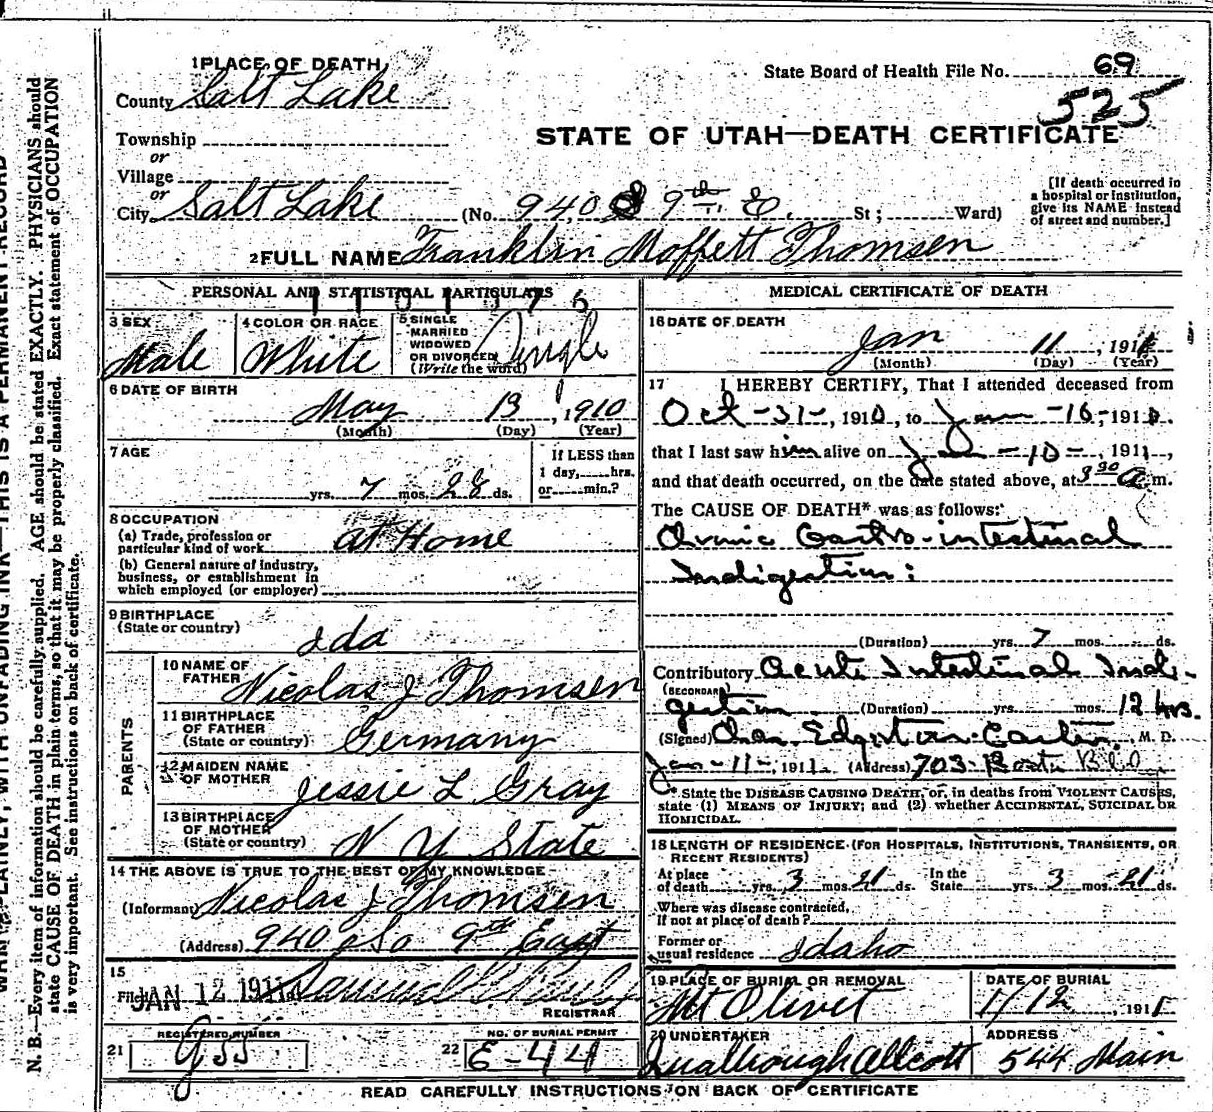 1 PLACE OF DEATH
County Salt Lake
State Board of Health File No. 69
525
Township
or
Village
or
STATE OF UTAH—DEATH CERTIFICATE
City Salt Lake (No. 940 S 9th E. St; Ward)
[If death occurred in a hospital or institution, give its NAME instead of street and number.]
2 FULL NAME Franklin Moffett Thomsen
PERSONAL AND STATISTICAL PARTICULARS
3 SEX Male
4 COLOR OR RACE White
5 SINGLE MARRIED WIDOWED OR DIVORCED (Write the word) Single
6 DATE OF BIRTH
May 13, 1910
(Month) (Day) (Year)
7 AGE
yrs. 7 mos. 28 ds.
If LESS than 1 day, hrs. or min.?
8 OCCUPATION
(a) Trade, profession or particular kind of work at Home
(b) General nature of industry, business, or establishment in which employed (or employer)
9 BIRTHPLACE
(State or country) Ida
PARENTS
10 NAME OF FATHER Nicolas J Thomsen
11 BIRTHPLACE OF FATHER (State or country) Germany
12 MAIDEN NAME OF MOTHER Jessie L Gray
13 BIRTHPLACE OF MOTHER (State or country) N Y State
14 THE ABOVE IS TRUE TO THE BEST OF MY KNOWLEDGE
(Informant) Nicolas J Thomsen
(Address) 940 So 9th East
15
Filed JAN 12 1911
REGISTRAR
REGISTERED NUMBER
21
NO. OF BURIAL PERMIT
22 E-44
MEDICAL CERTIFICATE OF DEATH
16 DATE OF DEATH
Jan 11, 1911
(Month) (Day) (Year)
17 I HEREBY CERTIFY, That I attended deceased from
Oct-31-, 1910, to Jan-10-, 1911.
that I last saw him alive on Jan-10-, 1911,
and that death occurred, on the date stated above, at 3 30 a.m.
The CAUSE OF DEATH* was as follows:
Chronic Gastro-intestinal
Indigestion:
(Duration) yrs. 7 mos. ds.
Contributory Acute Intestinal Indi-
(SECONDARY)
gestion (Duration) yrs. mos. 12 hrs.
(Signed) Chas. Edgerton M. D.
Jan-11-, 1911. (Address) 703
* State the DISEASE CAUSING DEATH, or, in deaths from VIOLENT CAUSES, state (1) MEANS OF INJURY; and (2) whether ACCIDENTAL, SUICIDAL OR HOMICIDAL.
18 LENGTH OF RESIDENCE (FOR HOSPITALS, INSTITUTIONS, TRANSIENTS, OR RECENT RESIDENTS)
At place of death yrs. 3 mos. 21 ds. In the State yrs. 3 mos. 21 ds.
Where was disease contracted, If not at place of death?
Former or usual residence Idaho
19 PLACE OF BURIAL OR REMOVAL
Mt Olivet
DATE OF BURIAL
1/12, 1911
20 UNDERTAKER
ADDRESS
544 Main
READ CAREFULLY INSTRUCTIONS ON BACK OF CERTIFICATE
N. B.—Every item of information should be carefully supplied. AGE should be stated EXACTLY. PHYSICIANS should
state CAUSE OF DEATH in plain terms, so that it may be properly classified. Exact statement of OCCUPATION
is very important. See instructions on back of certificate.